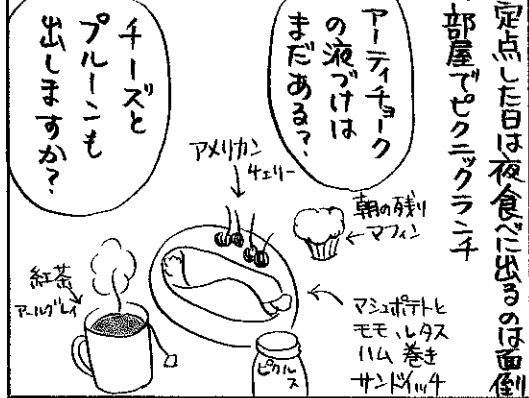 定点した日は夜食べに出るのは面倒
部屋でピクニックランチ
アーティチョーク
の液づけは
まだある?
チーズと
プルーンも
出しますか?
アメリカン
チェリー
朝の残り
マフィン
紅茶
アールグレイ
マシュポテトと
モモ、レタス
ハム 巻き
サンドイッチ
ピクル
ス